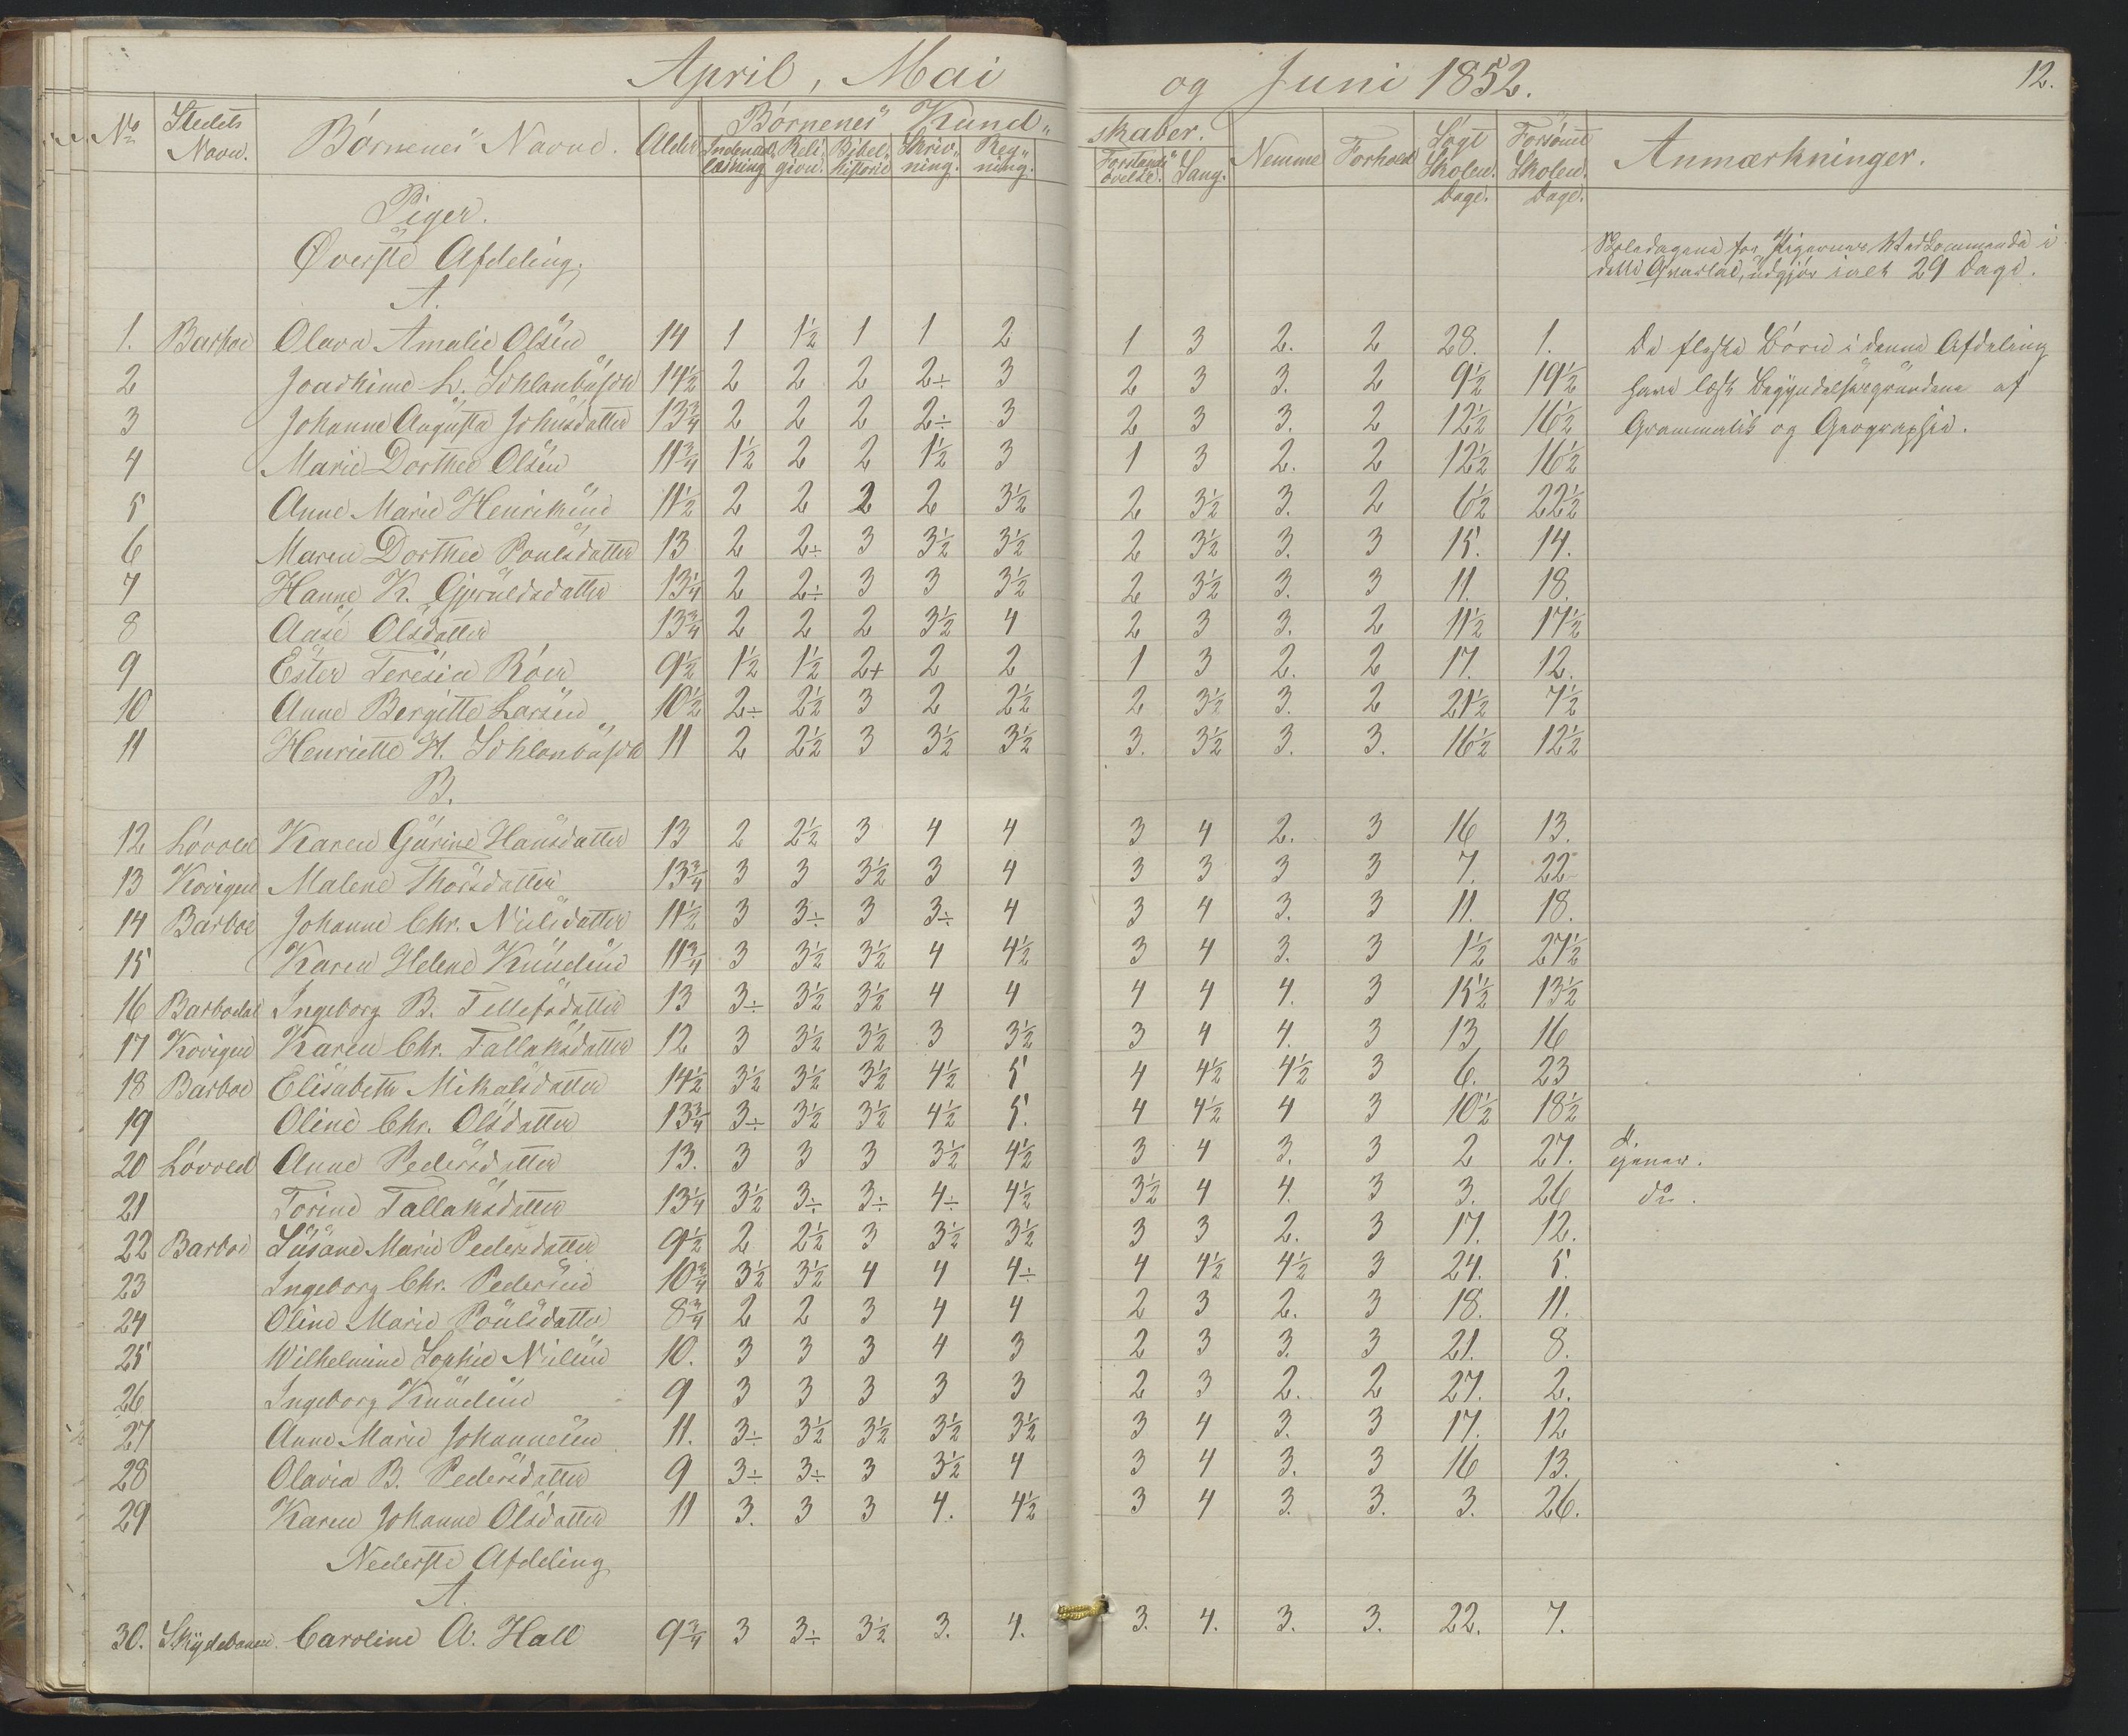 April, Mai og Juni 1852. 12.
No Stedets Navn. Børnenes Navne. Alder Børnenes Kundskaber. Nemme Forhold Søgt Skolen. Dage. Forsømt Skolen. Dage. Anmærkninger.
Indenadlæsning Religion. Bibelhistorie Skrivning. Regning. Forstandsøvelse. Sang.
Piger.
Øverste Afdeling,
Skoledagene for Pigernes Vedkommende i
dette Qvartal, udgjør ialt 29 Dage.
A.
1. Barboe Olava Amalie Olsen 14 1 1½ 1 1 2 1 3 2. 2 28. 1. De fleste Børn i denne Afdeling
2 Joachime L. Schlanbusch 14½ 2 2 2 2÷ 3 2 3 3. 2 9½ 19½ have læst Begyndelsesgrundene af
3 Johanne Augusta Johnsdatter 13¾ 2 2 2 2÷ 3 2 3 3. 2 12½ 16½ Grammatik og Geographie.
4 Marie Dorthee Olsen 11¾ 1½ 2 2 1½ 3 1 3 2. 2 12½ 16½
5 Anne Marie Henriksen 11½ 2 2 2 2 3½ 2 3½ 3. 2 6½ 22½
6 Maren Dorthee Poulsdatter 13 2 2÷ 3 3½ 3½ 2 3½ 3. 3 15. 14.
7 Hanne K. Gjeruldsdatter 13¼ 2 2÷ 3 3 3½ 2 3½ 3. 3 11. 18.
8 Aase Olsdatter 13¾ 2 2 2 3½ 4 2 3 3. 2 11½ 17½
9 Ester Teresia Röer 9½ 1½ 1½ 2+ 2 2 1 3 2. 2 17. 12.
10 Anne Bergitte Larsen 10½ 2÷ 2½ 3 2 2½ 2 3½ 3. 2 21½ 7½
11 Henriette H. Schlanbusch 11 2 2½ 3 3½ 3½ 3. 3½ 3. 3. 16½ 12½
B.
12 Løvold Karen Gurine Hansdatter 13 2 2½ 3 4 4 3 4 2. 3 16 13.
13 Kovigen Malene Thorsdatter 13¾ 3 3 3½ 3 4 3 3 3 3 7. 22
14 Barboe Johanne Chr. Nielsdatter 11½ 3 3÷ 3 3÷ 4 3 4 3. 3 11. 18.
15 Karen Helene Knudsen 11¾ 3 3½ 3½ 4 4½ 3 4 3. 3 1½ 27½
16 Barbodal Ingeborg B. Tellefsdatter 13 3÷ 3½ 3½ 4 4 4 4 4. 3 15½ 13½
17 Kovigen Karen Chr. Tallaksdatter 12 3 3½ 3½ 3 3½ 3 4 4. 3 13 16
18 Barboe Elisabeth Mikalsdatter 14½ 3½ 3½ 3½ 4½ 5 4 4½ 4½ 3 6. 23
19 Oline Chr. Olsdatter 13¾ 3÷ 3½ 3½ 4½ 5. 4 4½ 4 3 10½ 18½
20 Løvold Anne Pedersdatter 13. 3 3 3 3½ 4½ 3 4 3. 3 2 27. tjener.
21 Torine Tallaksdatter 13¼ 3½ 3÷ 3÷ 4÷ 4½ 3½ 4 4. 3 3. 26 do.
22 Barboe Susane Marie Pedersdatter 9½ 2 2½ 3 3½ 3½ 3 3 2. 3 17. 12.
23 Ingeborg Chr. Pedersen 10¾ 3½ 3½ 4 4 4÷ 4 4½ 4½ 3 24. 5.
24 Oline Marie Poulsdatter 8¾ 2 2 3 4 4 2 3 2. 3 18. 11.
25 Wilhelmine Sophie Nielsen 10. 3 3 3 4 3 2 3 3. 3 21. 8.
26 Ingeborg Knudsen 9 3 3 3 3 3 2 3 2. 2 27. 2.
27 Anne Marie Johannesen 11. 3÷ 3½ 3½ 3½ 3½ 3 4 3. 3 17. 12
28 Olavia B. Pedersdatter 9 3÷ 3÷ 3 3½ 4 3 4 3. 3 16 13.
29 Karen Johanne Olsdatter 11 3. 3 3 4. 4½ 3 4 3. 3. 3. 26.
Nederste Afdeling
A.
30. Skydebanen. Caroline A. Hall 9¾ 3 3÷ 3½ 3. 4. 3. 4. 3. 3. 22. 7.